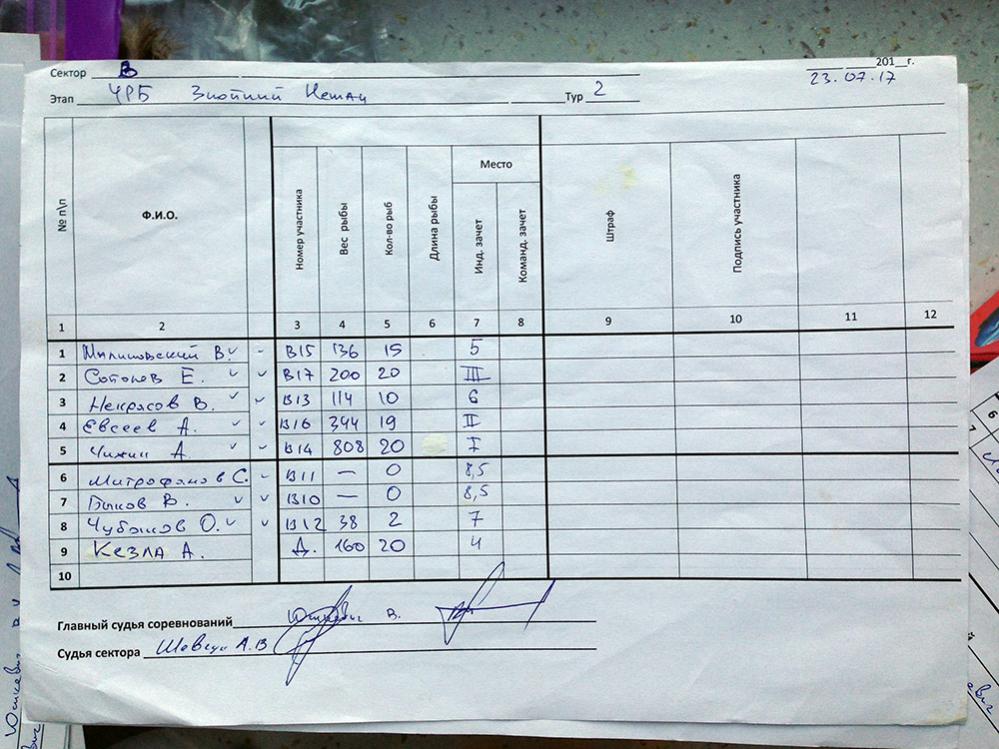 Сектор В 201_г.
23.07.17
Этап ЧРБ Знойний Неман Тур 2
№ п\п Ф.И.О. Номер участника Вес рыбы Кол-во рыб Длина рыбы Место Инд. зачет Команд. зачет Штраф Подпись участника
1 2 3 4 5 6 7 8 9 10 11 12
1 В. В15 136 15 5
2 Е. В17 200 20 III
3 Некрасов В. В13 114 10 6
4 Евсеев А. В16 344 19 II
5 Чижик А. В14 808 20 I
6 Митрофанов С. В11 — 0 8,5
7 Быков В. В10 — 0 8,5
8 Чубаков О. В12 38 2 7
9 Кезла А. Д. 160 20 4
10
Главный судья соревнований Юшкевич В.
Судья сектора А.В
Юшкевич